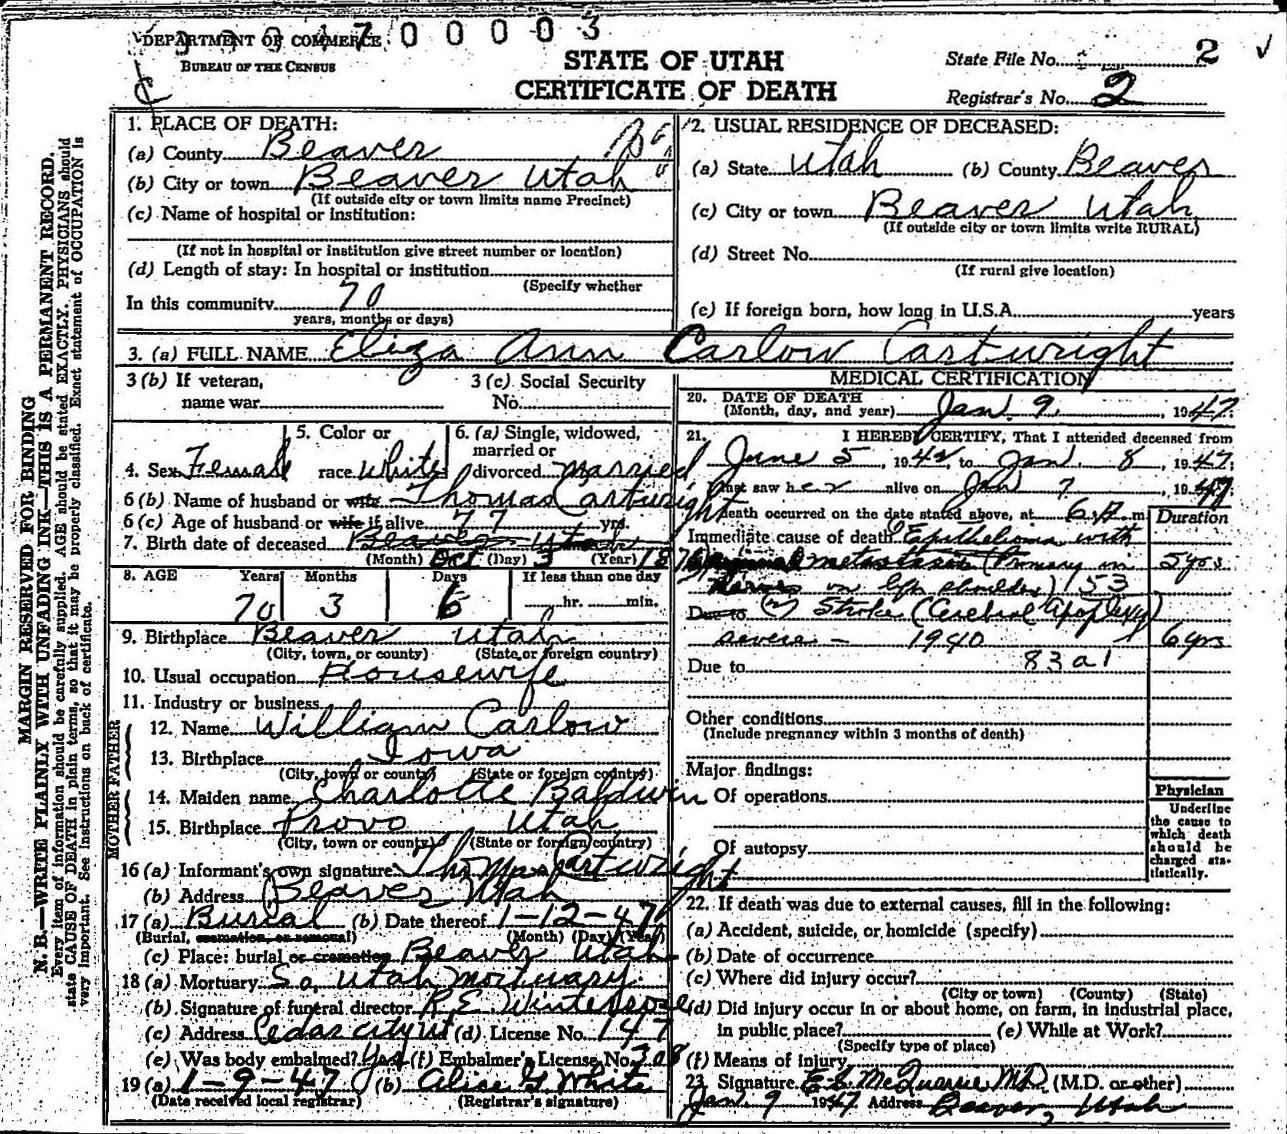 DEPARTMENT OF COMMERCE
BUREAU OF THE CENSUS
STATE OF UTAH
CERTIFICATE OF DEATH
State File No. 2
Registrar's No. 2
MARGIN RESERVED FOR BINDING
N. B.—WRITE PLAINLY WITH UNFADING INK—THIS IS A PERMANENT RECORD.
Every item of information should be carefully supplied. AGE should be stated EXACTLY. PHYSICIANS should
state CAUSE OF DEATH in plain terms, so that it may be properly classified. Exact statement of OCCUPATION is
very important. See instructions on back of certificate.
1. PLACE OF DEATH:
(a) County Beaver
(b) City or town Beaver Utah
(If outside city or town limits name Precinct)
(c) Name of hospital or institution:
(If not in hospital or institution give street number or location)
(d) Length of stay: In hospital or institution
(Specify whether
In this community 70
years, months or days)
2. USUAL RESIDENCE OF DECEASED:
(a) State Utah (b) County Beaver
(c) City or town Beaver Utah
(If outside city or town limits write RURAL)
(d) Street No.
(If rural give location)
(e) If foreign born, how long in U.S.A. years
3. (a) FULL NAME Eliza Ann Carlow Cartwright
3 (b) If veteran, name war
3 (c) Social Security No.
4. Sex Female
5. Color or race White
6. (a) Single, widowed, married or divorced married
6 (b) Name of husband or wife Thomas Cartwright
6 (c) Age of husband or wife if alive 77 yrs.
7. Birth date of deceased Beaver Utah
(Month) Oct (Day) 3 (Year) 1876
8. AGE Years Months Days If less than one day
70 3 6 hr. min.
9. Birthplace Beaver Utah
(City, town, or county) (State or foreign country)
10. Usual occupation Housewife
11. Industry or business
FATHER
12. Name William Carlow
13. Birthplace Iowa
(City, town or county) (State or foreign country)
MOTHER
14. Maiden name Charlotte Baldwin
15. Birthplace Provo Utah
(City, town or county) (State or foreign country)
16 (a) Informant's own signature Thomas Cartwright
(b) Address Beaver Utah
17 (a) Burial (b) Date thereof 1-12-47
(Burial, cremation, or removal) (Month) (Day) (Year)
(c) Place: burial or cremation Beaver Utah
18 (a) Mortuary So. Utah Mortuary
(b) Signature of funeral director R.E. Winterrose
(c) Address Cedar City Ut (d) License No. 147
(e) Was body embalmed? Yes (f) Embalmer's License No. 308
19 (a) 1-9-47 (b) Alice G White
(Date received local registrar) (Registrar's signature)
MEDICAL CERTIFICATION
20. DATE OF DEATH
(Month, day, and year) Jan. 9, 1947
21. I HEREBY CERTIFY, That I attended deceased from
June 5, 1942, to Jan. 8, 1947;
I last saw her alive on Jan 7, 1947
death occurred on the date stated above, at 6 A m. Duration
Immediate cause of death Epithelioma with
metastases (Primary in 5 yrs.
in left shoulder) 53
Due to (2) Stroke (Cerebral Apoplexy)
severe - 1940 6 yrs
83a1
Due to
Other conditions
(Include pregnancy within 3 months of death)
Major findings:
Of operations
Of autopsy
Physician
Underline
the cause to
which death
should be
charged sta-
tistically.
22. If death was due to external causes, fill in the following:
(a) Accident, suicide, or homicide (specify)
(b) Date of occurrence
(c) Where did injury occur?
(City or town) (County) (State)
(d) Did injury occur in or about home, on farm, in industrial place,
in public place? (e) While at Work?
(Specify type of place)
(f) Means of injury
23. Signature E.S. McQuarrie M.D. (M.D. or other)
Jan. 9 1947 Address Beaver, Utah